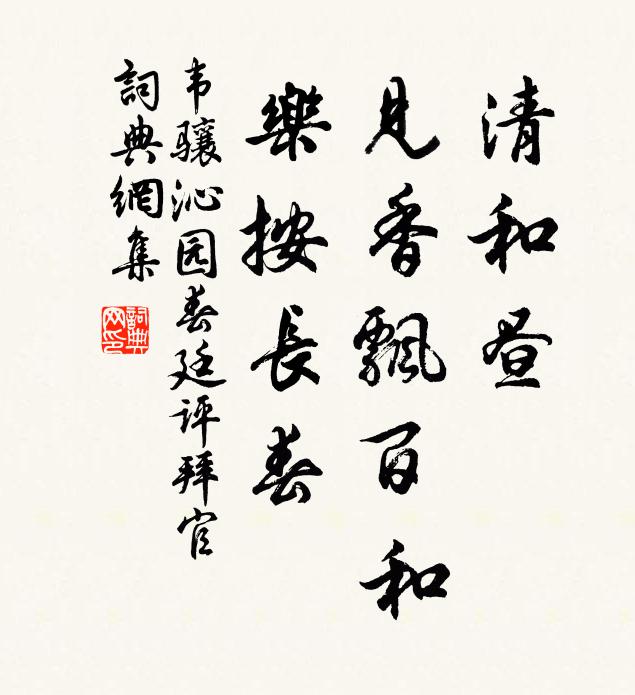 清和昼
見香飄百和
樂按長春
韦骧沁园春廷评拜官
詞典網集
詞典网印